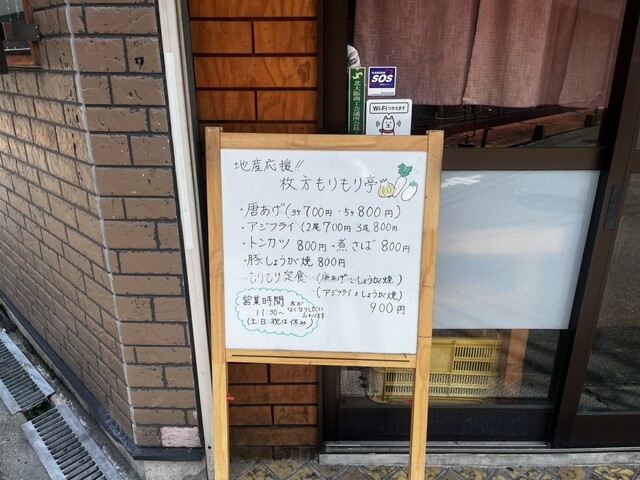 SOS
北大阪商工会議所会員
Wi-Fiつかえます
地産応援!!
枚方もりもり亭
・唐あげ(3ヶ700円・5ヶ800円)
・アジフライ(2尾700円 3尾800円
・トンカツ 800円・煮さば 800円
・豚しょうが焼 800円
・もりもり定食・(唐あげとしょうが焼)
・(アジフライとしょうが焼)
900円
営業時間
11:30~
なくなりしだい
(土日祝は休み)